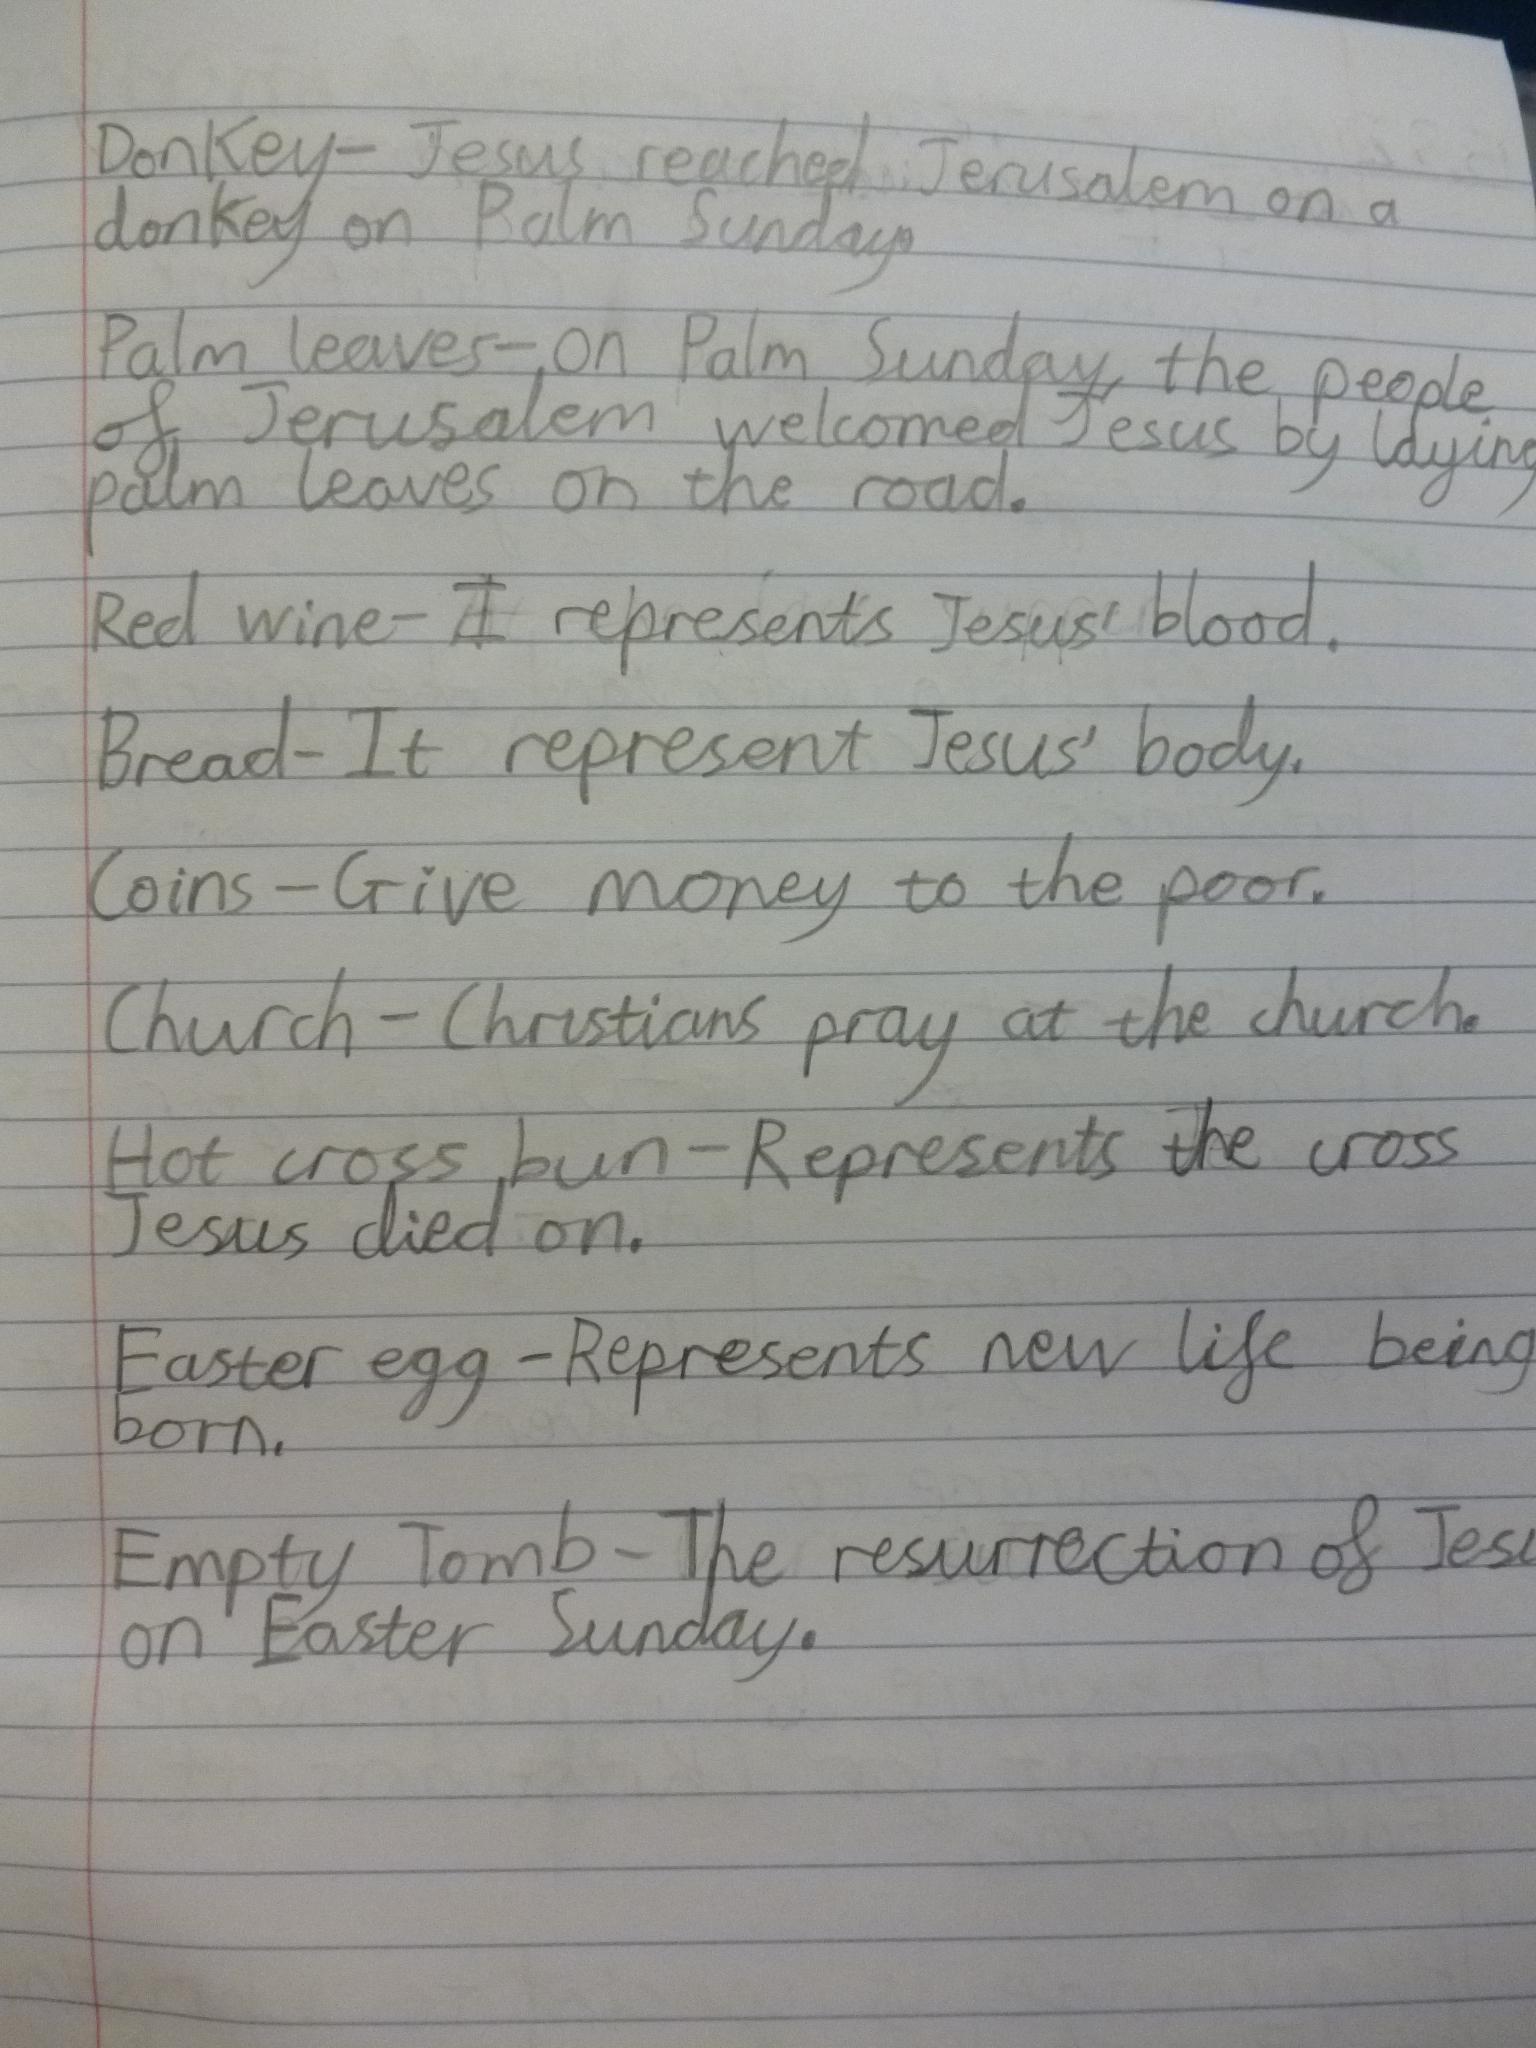 Donkey- Jesus reached Jerusalem on a
donkey on Palm Sunday.
Palm leaves- on Palm Sunday, the people
of Jerusalem welcomed Jesus by laying
palm leaves on the road.
Red wine- I represents Jesus' blood.
Bread- It represent Jesus' body.
Coins - Give money to the poor.
Church - Christians pray at the church.
Hot cross bun - Represents the cross
Jesus died on.
Easter egg - Represents new life being
born.
Empty Tomb - The resurrection of Jesu
on Easter Sunday.